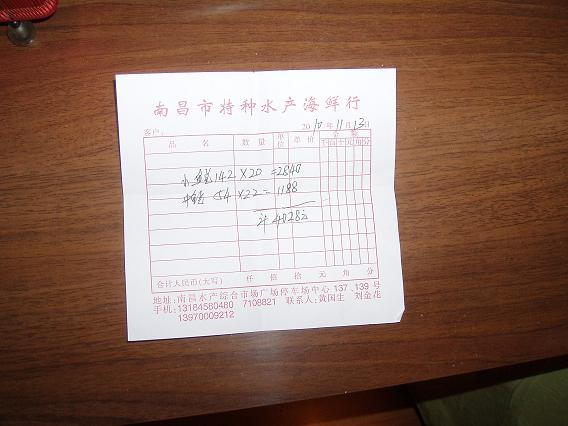 南昌市特种水产海鲜行
客户： 2010年11月13日
品名 数量 单位 单价 金额
千百十元角分
小 142×20=2840
中 54×22=1188
计4028元
合计人民币(大写) 仟 佰 拾 元 角 分
地址:南昌水产综合市场广场停车场中心137、139号
手机:13184580480 7108821 联系人:黄国生 刘金花
13970009212